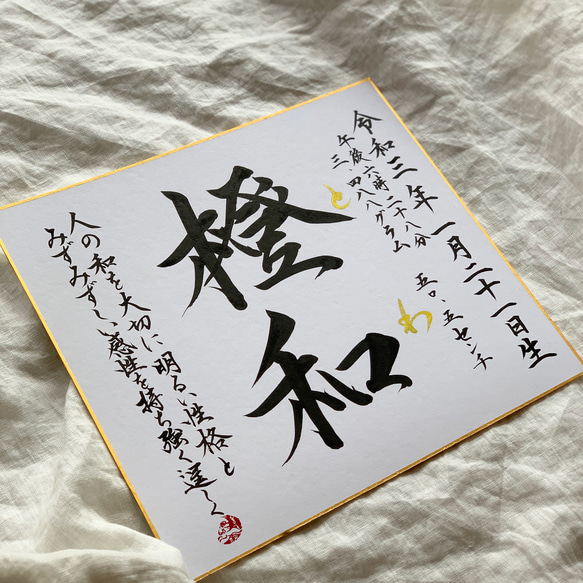 令和三年一月二十一日生
午後六時二十八分
三.四八八グラム
五〇.五センチ
橙和
とわ
人の和を大切に明るい性格と
みずみずしい感性を持ち強く逞しく